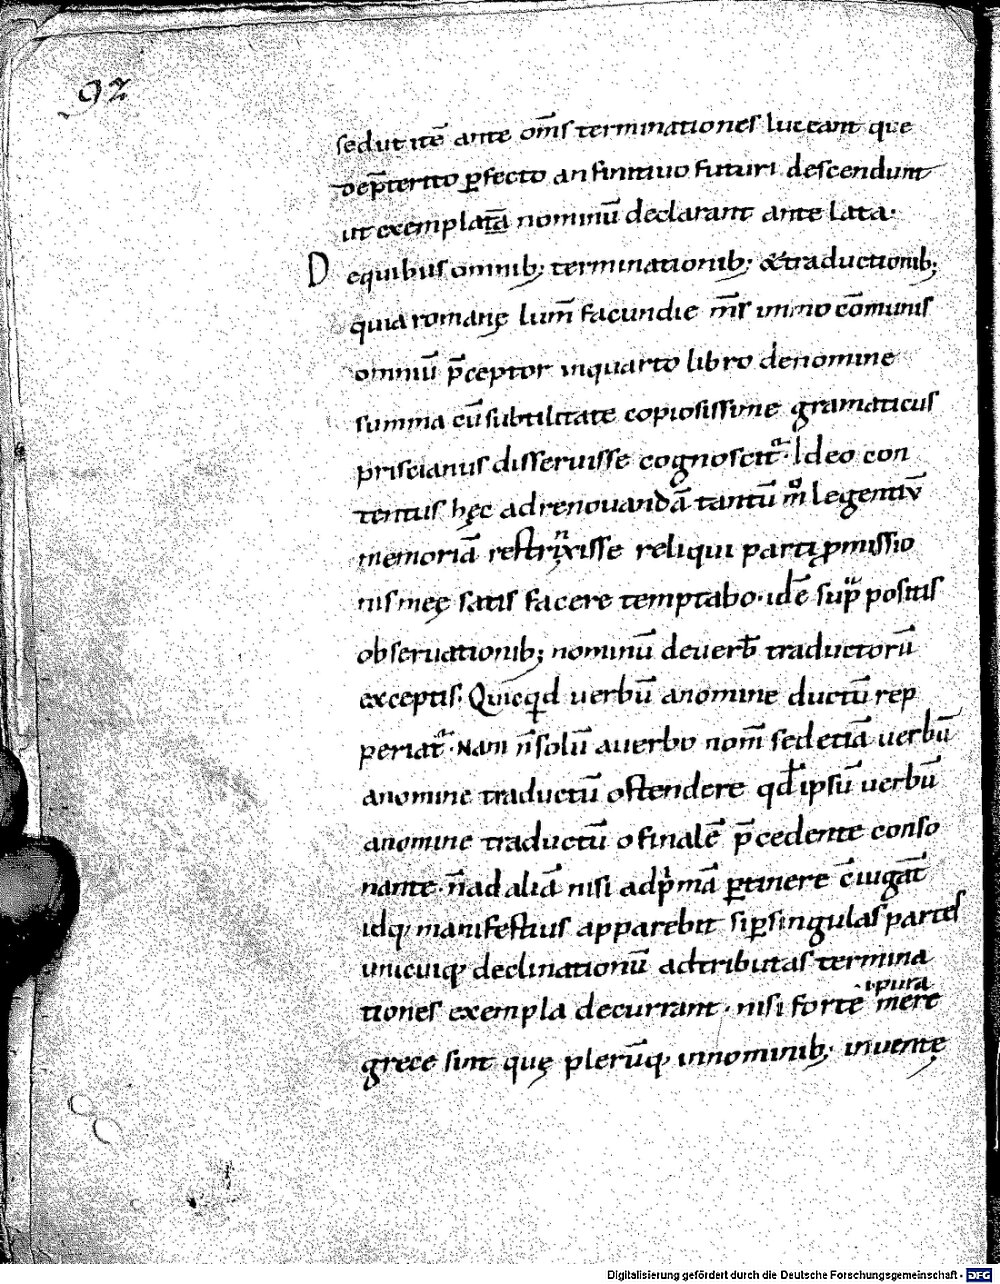 92
sedut itē ante om̅s terminationes luceant que
de p̅terito ꝑfecto an finitiuo futuri descendunt
ut exempla tā nominū declarant ante lata.
D equibus omnib; terminationib; & traductionib;
quia romanę lum̅ facundie m̅s immo cōmunis
omniū p̅ceptor inquarto libro denomine
summa cū subtilitate copiosissime gramaticus
priscianus disseruisse cognoscit᷑. Ideo con
tentus hęc adrenouandā tantū legentiū
memoriā restrinxisse reliqui parti ꝓmissio
nis meę satis facere temptabo. idē sup̅ positis
obseruationib; nominū deuerb̅ traductorū
exceptis. Quicqd uerbū anomine ductū rep
periat᷑. Nam n̅ solū auerbo nom̅ sed etiā uerbū
anomine traductū ostendere qd̅ ipsū uerbū
anomine traductū o finalē p̅cedente conso
nante. n̅ ad aliā nisi adp̅mā ꝑtinere c̅iugat̅
idq; manifestius apparebit si ꝑ singulas partes
unicuiq; declinationū adtributas termina
tiones exempla decurrant. nisi forte mere
ł pura
grece sint quę plerūq; innominib; inuentę
Digitalisierung gefördert durch die Deutsche Forschungsgemeinschaft - DFG